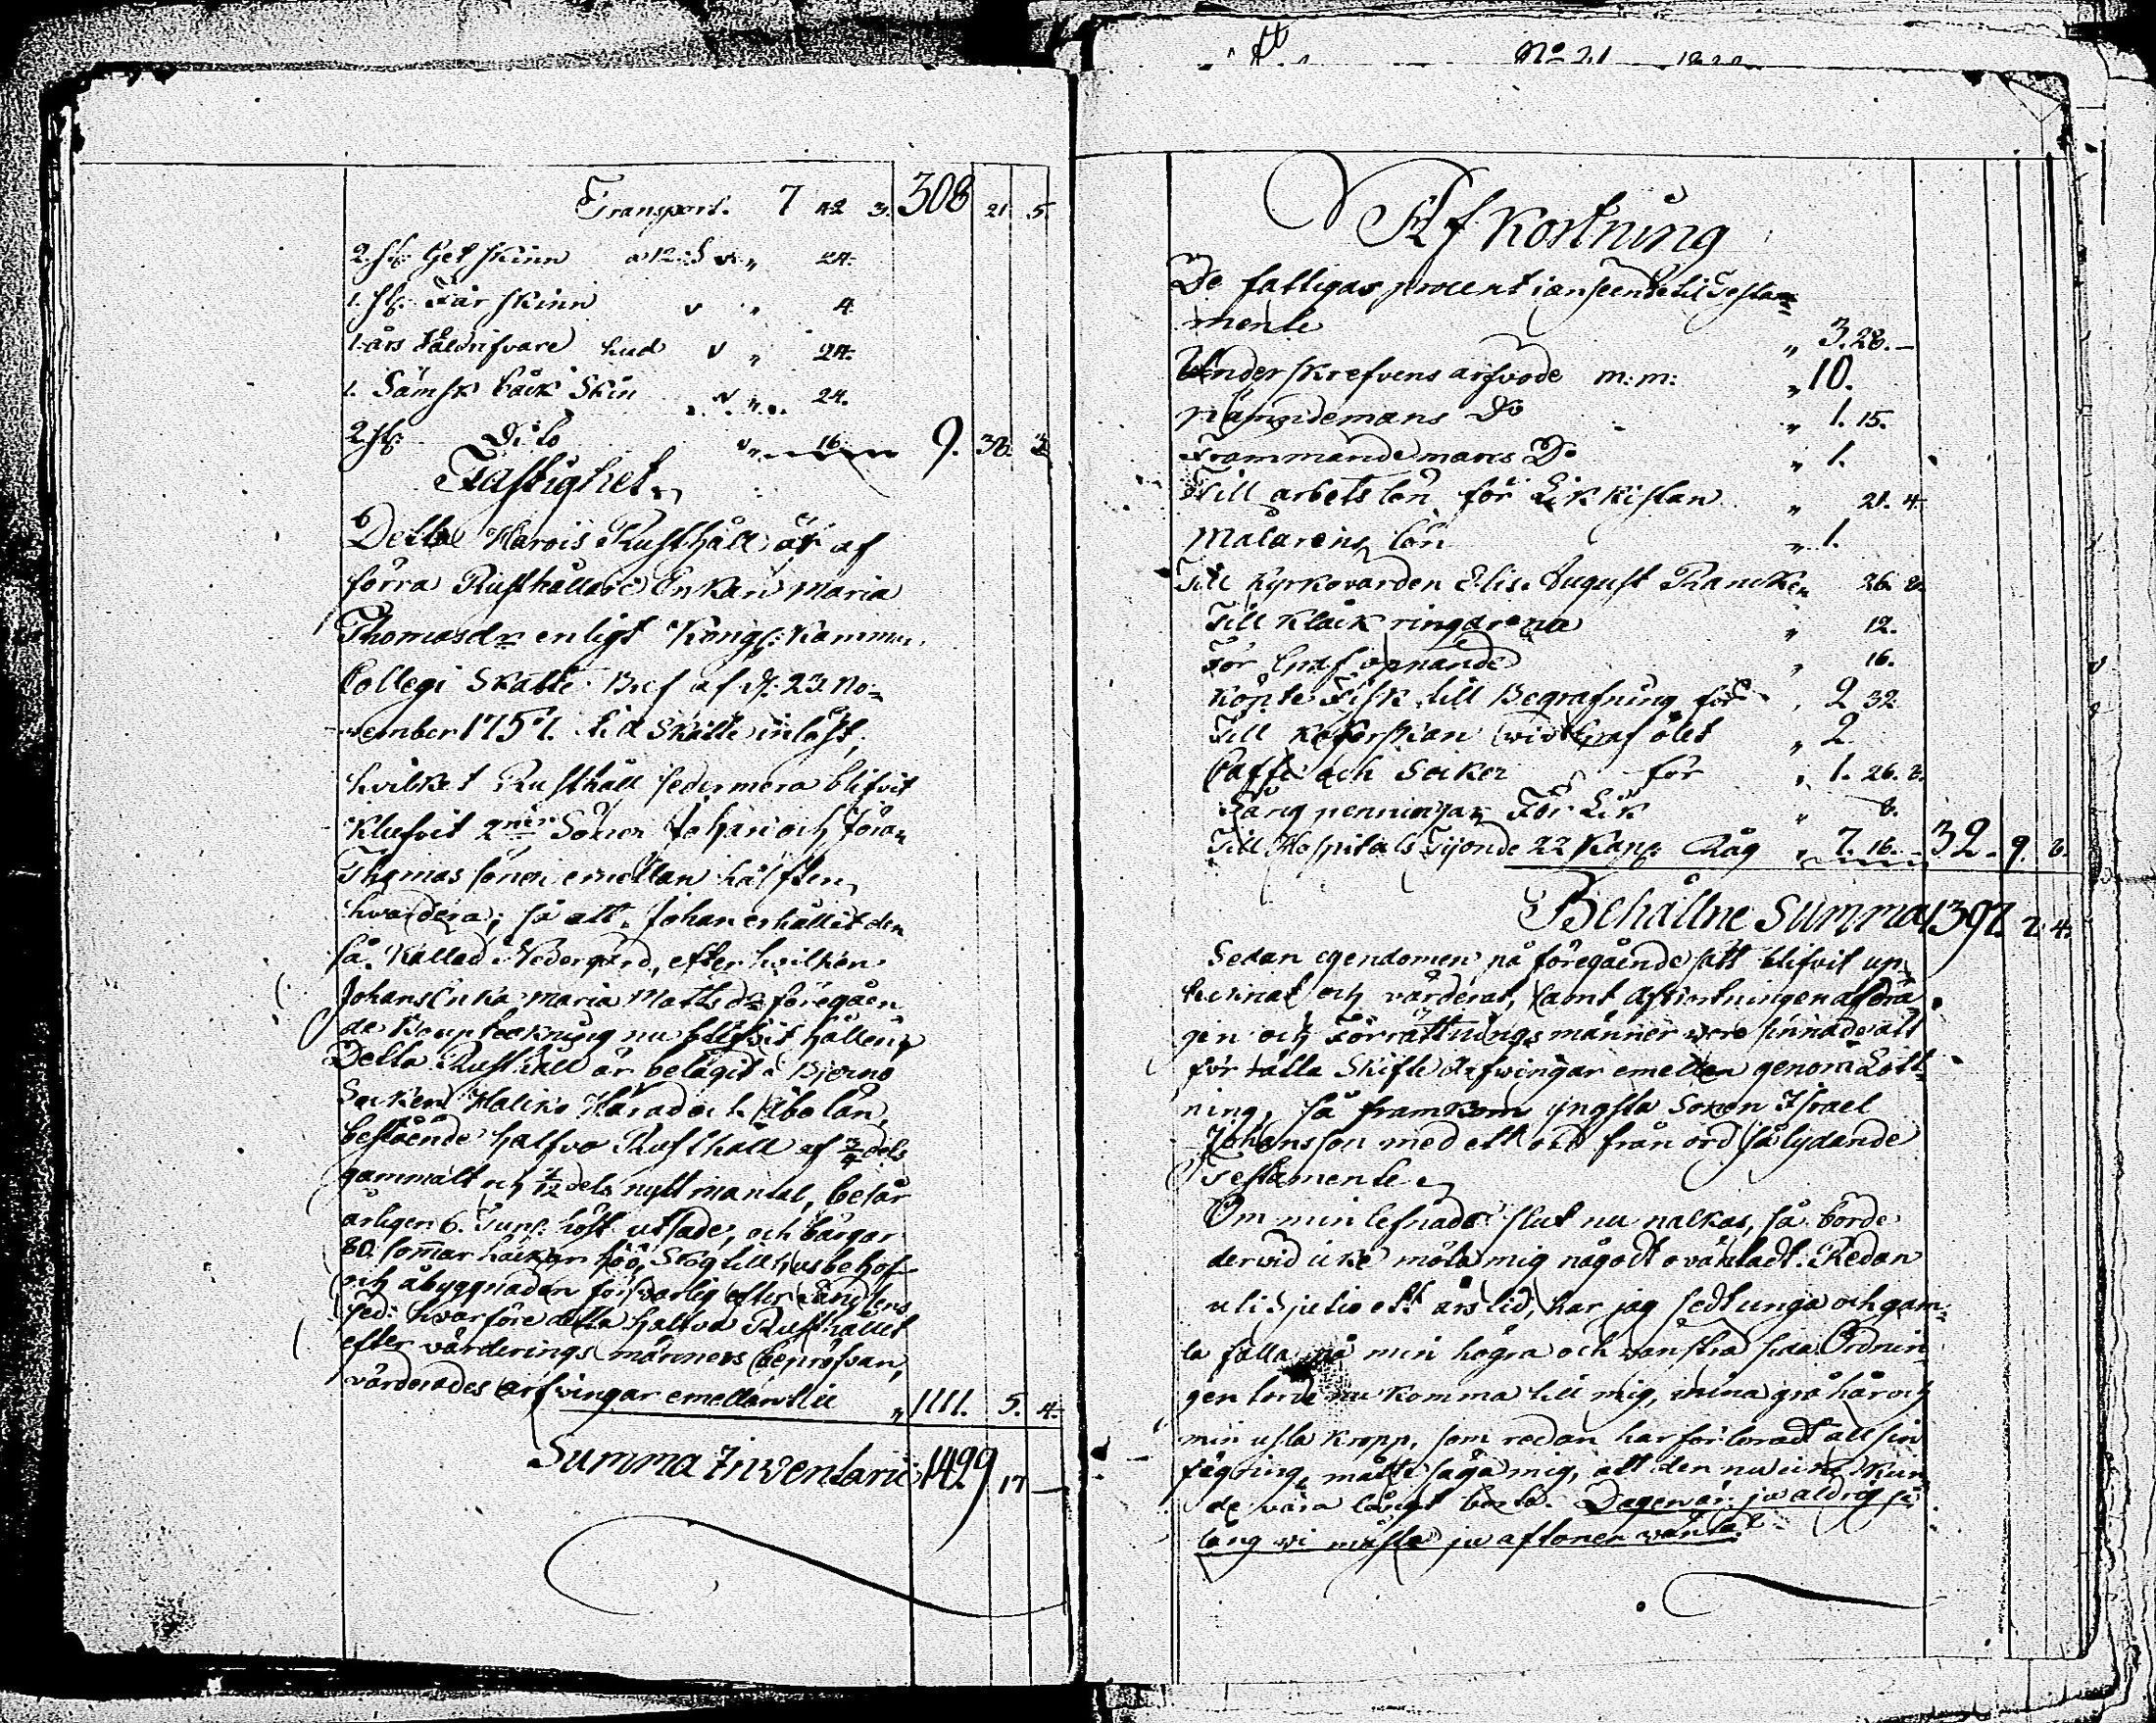 Transport. 7 42 3. 308 21. 5.
2. st: Get skinn a 12 s " 24.
1. st: Får skinn " 4.
1. års hud " 24.
1. Sämsk Båck Skin " 24.
2. st: Dito 16 9. 38. 3
Fastighet.
Detta Harois Rusthåll är af
förra Rusthållare Enkan Maria
Thomasdr enligt Kongl: Kammar
Collegi Skatte Bref af d. 23. No=
vember 1757. til Skatte inlöst,
hvilket Rusthåll sedermera blifvit
Klufvit 2ne Söner Johan och Jöran
Thomas söner emellan hälften
hvardera; så att Johan erhållit den
så Kallad Nedergård, efter hvilken
Johans Enka Maria Matsdr föregåen
de Bouptekning nu blifvit hållen,
Detta Rusthåll är belägit i Bjerno
Socken Haliko Härad och Åbo län,
bestående halfva Rusthåll af 3/4 dels
gammalt och 7/12 dels nytt mantal, besår
årligen 6. Tunr: höst utsäde, och bärgar
80. sommar höö, Skog till husbehof
och åbyggnaden försvarlig efter Landsens
sed: hvarföre detta halfva Rusthållet
efter värderings männers bepröfvan,
värderades arfvingar emellan till " 1111. 5. 4.
Summa Inventarii 1429 17 —
No 21
Af Kortning
De fattigas procent i anseende til Testa=
mente " 3. 28. —
Underskrefvens arfvode m: m: " 10.
Nämndemans Do " 1. 15.
Frammande mans Do " 1.
Till arbets lön för Lik kistan " 21. 4.
Målarens lön " 1.
Till Kyrkovärden Elis August Rancken 26. 8.
Till Klåck ringarena " 12.
För Graf öpnande " 16.
Köpte Fisk till Begrafning för " 2 32
Till Kokerskan vid Graf ölet " 2
Caffe och Socker för " 1. 26. 8.
penningar För Lik " 8.
Till Hospitals Tijonde 22 Kapr: Råg " 7. 16. 32. 9. 8.
Behållne Summa 1397. 7. 4.
Sedan egendomen på föregående sätt blifvit up
teknat och värderat, samt Afkortningen afdra
gen och Förrättnings männer vore sinnade att
förrätta Skifte arfvingar emellan genom Lott=
ning, så framkom yngsta Sonen Israel
Johansson med ett ord från ord så lydande
Testamente.
Om min lefnads slut nu nalkas, så borde
dervid icke möta mig någodt oväntadt. Redan
uti sjutio ett års tid, har jag sedt unga och gam=
la falla på min högra och vänstra sida Ordnin=
gen torde nu komma till mig, mina grå hår och
min usla kropp, som redan har förlorat all sin
fägring, måtte säga mig, att den nu icke skun
de vara långt borta. Dagen är ju aldrig så
lång vi måste ju aftonen vänta.